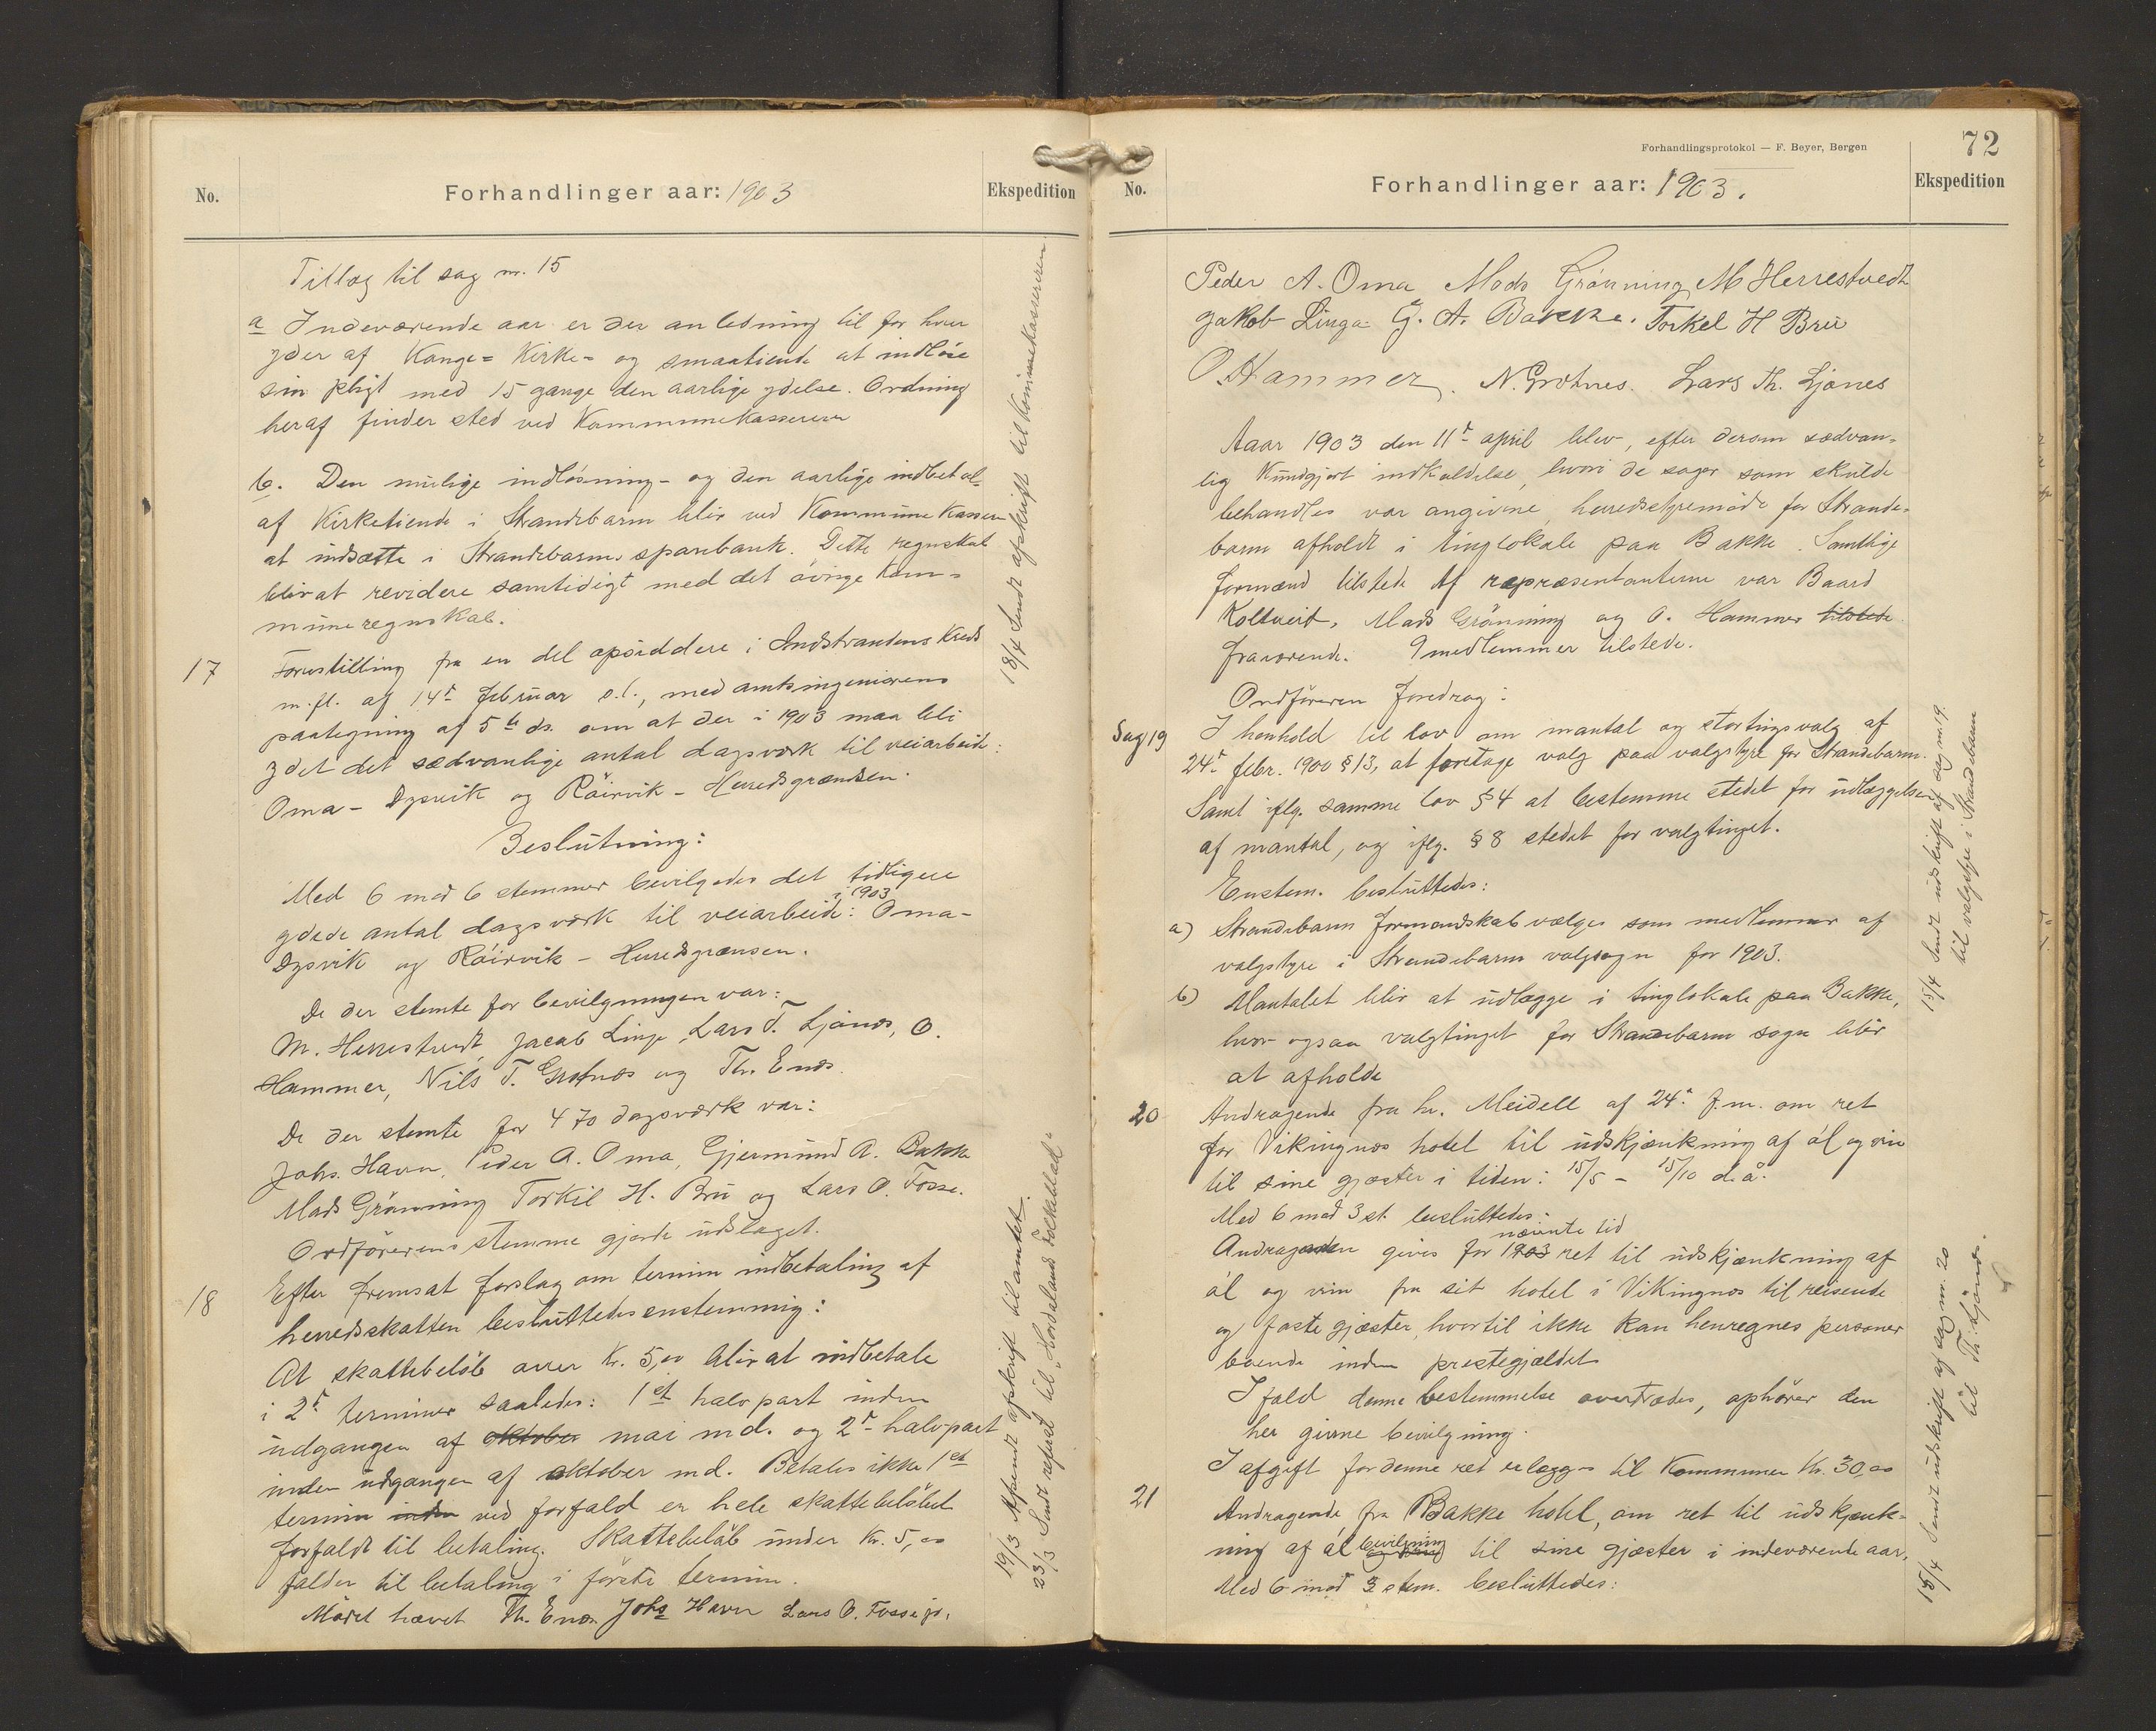 No.
Forhandlinger aar: 1903
Ekspedition
Tillæg til sag nr. 15
a Indeværende aar er der anledning til for hver
yder af Konge= Kirke- og smaatiende at indløse
sin pligt med 15 gange den aarlige ydelse. Ordning
heraf finder sted ved Kommunekassereren
b. Den mulige indløsning- og den aarlige indbetal-
af Kirketiende i Strandebarm blir ved Kommunekasseren
at indsætte i Strandebarms sparebank. Dette regnskab
blir at revidere samtidigt med det øvrige kom-
muneregnskab.
18/4 Sendt afskrift til Kommunekassereren.
17
Forestilling fra en del opsiddere i Indstrandens Kreds
m.fl. af 14de februar s.l., med amtsingeniørens
paategning af 5te ds. om at der i 1903 maa bli
ydet det sædvanlige antal dagsverk til veiarbeide:
Oma- Dysvik og Röirvik - Herredsgrændsen.
Beslutning:
Med 6 mod 6 stemmer bevilgedes det tidligere
ydede antal dagsverk til veiarbeide i 1903: Oma-
Dysvik og Röirvik - Herredsgrænsen.
De der stemte for bevilgningen var:
M. Herrestvedt, Jacob Linge, Lars T. Ljönes, O.
Hammer, Nils T. Grotnæs og Th. Enæs.
De der stemte for 470 dagsværk var:
Johs. Havn, Peder A. Oma, Gjermund A. Bakke
Mads Grönning Torkil H. Bru og Lars O. Fosse.
Ordförerens stemme gjorde udslaget.
18
Efter fremsat forslag om termin indbetaling af
herredsskatten besluttedes enstemmig:
At skattebelöb over Kr. 5,00 blir at indbetale
i 2de terminer saaledes: 1ste halvpart inden
udgangen af oktober mai md. og 2den halvpart
inden udgangen af oktober md. Betales ikke 1ste
termin inden ved forfald er hele skattebelöbet
forfaldt til betaling. Skattebelöb under Kr. 5,00
falder til betaling i förste termin.
Mödet hævet Th. Enæs Johs Havn Lars O. Fosse
19/3 Afsendt afskrift til amtet.
23/3 Sendt referat til „Hordaland Folkeblad"
Forhandlingsprotokol — F. Beyer, Bergen
72
No.
Forhandlinger aar: 1903.
Ekspedition
Peder A. Oma Mads Grönning M Herrestvedt
Jakob Linga G. A. Bakke. Torkel H Bru
O. Hammer. N. Grotnes. Lars Th. Ljönes
Aaar 1903 den 11te april blev, efter dersom sædvan-
lig kundgjort indkaldelse, hvori de sager som skulde
behandles var angivne, herredsstyremöde for Strande-
barm afholdt i tinglokale paa Bakke. Samtlige
formænd tilstede Af repræsentanterne var Baard
Koltveit, Mads Grönning og O. Hammer tilstede
fraværende. 9 medlemmer tilstede.
Ordföreren foredrog:
Sag 19
I henhold til lov om mantal og stortingsvalg af
24de febr. 1900 § 13, at foretage valg paa valgstyre for Strandebarm.
Samt iflg. samme lov § 4 at bestemme stedet for udlæggelsen
af mantal, og iflg. § 8 stedet for valgtinget.
Enstem. besluttedes:
a) Strandebarm formandskab vælges som medlemmer af
valgstyre i Strandebarm valgsogn for 1903.
b) Mantalet blir at udlægge i tinglokale paa Bakke,
hvor ogsaa valgtinget for Strandebarm sogn blir
at afholde
15/4 Sendt udskrift af sag nr 19.
til valgstyre i Strandebarm
20
Andragende fra hr. Meidell af 24de f.m. om ret
for Vikingnæs hotel til udskjænkning af öl og vin
til sine gjæster i tiden: 15/5 - 15/10 d.å.
Med 6 mod 3 st. besluttedes:
nævnte tid
Andrageren gives for 1903 ret til udskjænkning af
öl og vin fra sit hotel i Vikingnæs til reisende
og faste gjæster, hvortil ikke kan henregnes personer
boende inden prestegjældet
I fald denne bestemmelse overtrædes, ophører den
her givne bevilgning.
I afgift for denne ret erlægges til Kommunen Kr. 30,00
15/4 Sendt udskrift af sag nr. 20
til Th. Ljönes.
21
Andragende fra Bakke hotel, om ret til udskjænk-
ning af öl bevilgning til sine gjæster i indeværende aar.
Med 6 mod 3 stem. besluttedes: